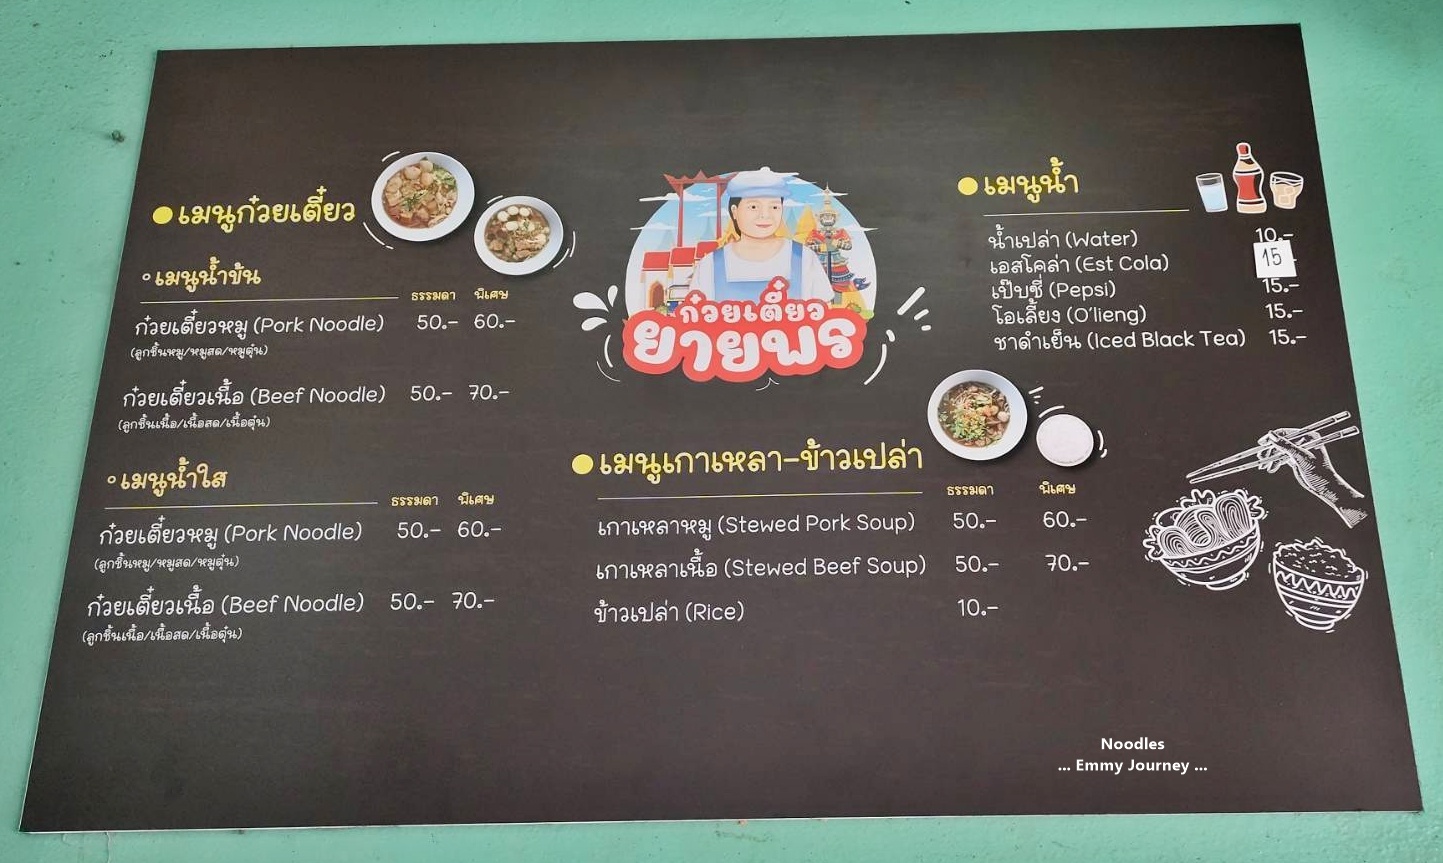 เมนูก๋วยเตี๋ยว
เมนูน้ำข้น
ธรรมดา พิเศษ
ก๋วยเตี๋ยวหมู (Pork Noodle) 50.- 60.-
(ลูกชิ้นหมู/หมูสด/หมูตุ๋น)
ก๋วยเตี๋ยวเนื้อ (Beef Noodle) 50.- 70.-
(ลูกชิ้นเนื้อ/เนื้อสด/เนื้อตุ๋น)
เมนูน้ำใส
ธรรมดา พิเศษ
ก๋วยเตี๋ยวหมู (Pork Noodle) 50.- 60.-
(ลูกชิ้นหมู/หมูสด/หมูตุ๋น)
ก๋วยเตี๋ยวเนื้อ (Beef Noodle) 50.- 70.-
(ลูกชิ้นเนื้อ/เนื้อสด/เนื้อตุ๋น)
ก๋วยเตี๋ยว
ยายพร
เมนูเกาเหลา-ข้าวเปล่า
ธรรมดา พิเศษ
เกาเหลาหมู (Stewed Pork Soup) 50.- 60.-
เกาเหลาเนื้อ (Stewed Beef Soup) 50.- 70.-
ข้าวเปล่า (Rice) 10.-
เมนูน้ำ
น้ำเปล่า (Water) 10.-
เอสโคล่า (Est Cola) 15
เป๊บซี่ (Pepsi) 15.-
โอเลี้ยง (O'lieng) 15.-
ชาดำเย็น (Iced Black Tea) 15.-
Noodles
... Emmy Journey ...